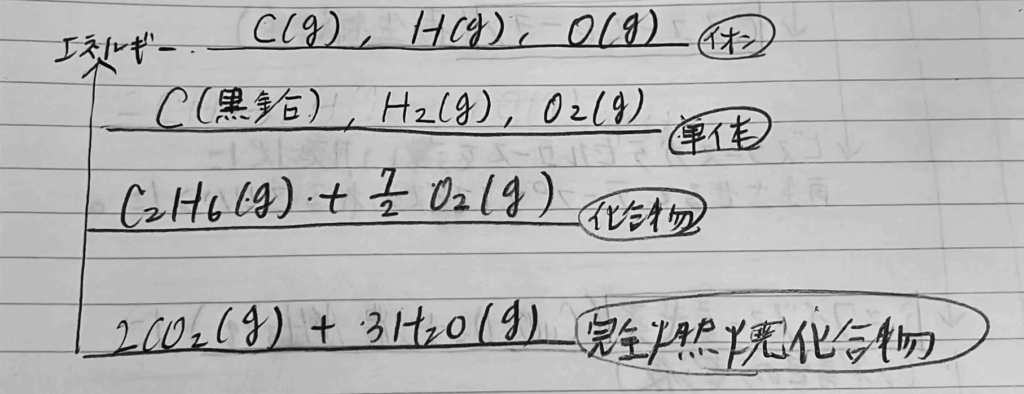 エネルギー C(g), H(g), O(g) イオン
C(黒鉛), H2(g), O2(g) 単体
C2H6(g) + 7/2 O2(g) 化合物
2CO2(g) + 3H2O(g) 完全燃焼化合物